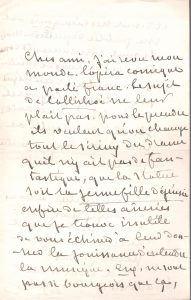 Cher ami, j'ai revu mon
monde. L'opéra comique
a parlé franc. Le sujet
de ne leur
plait pas. pour le prendre
ils veulent qu'on change
tout le sirieux du drame
qu'il n'y ait pas de fan-
tastique, que la statue
soit la jeune fille déguisée
enfin de telles âneries
que je trouve inutile
de vous échiner à leur don-
ner la jouissance de ça,
la musique. ne sont
pas si bourgeois que ça,